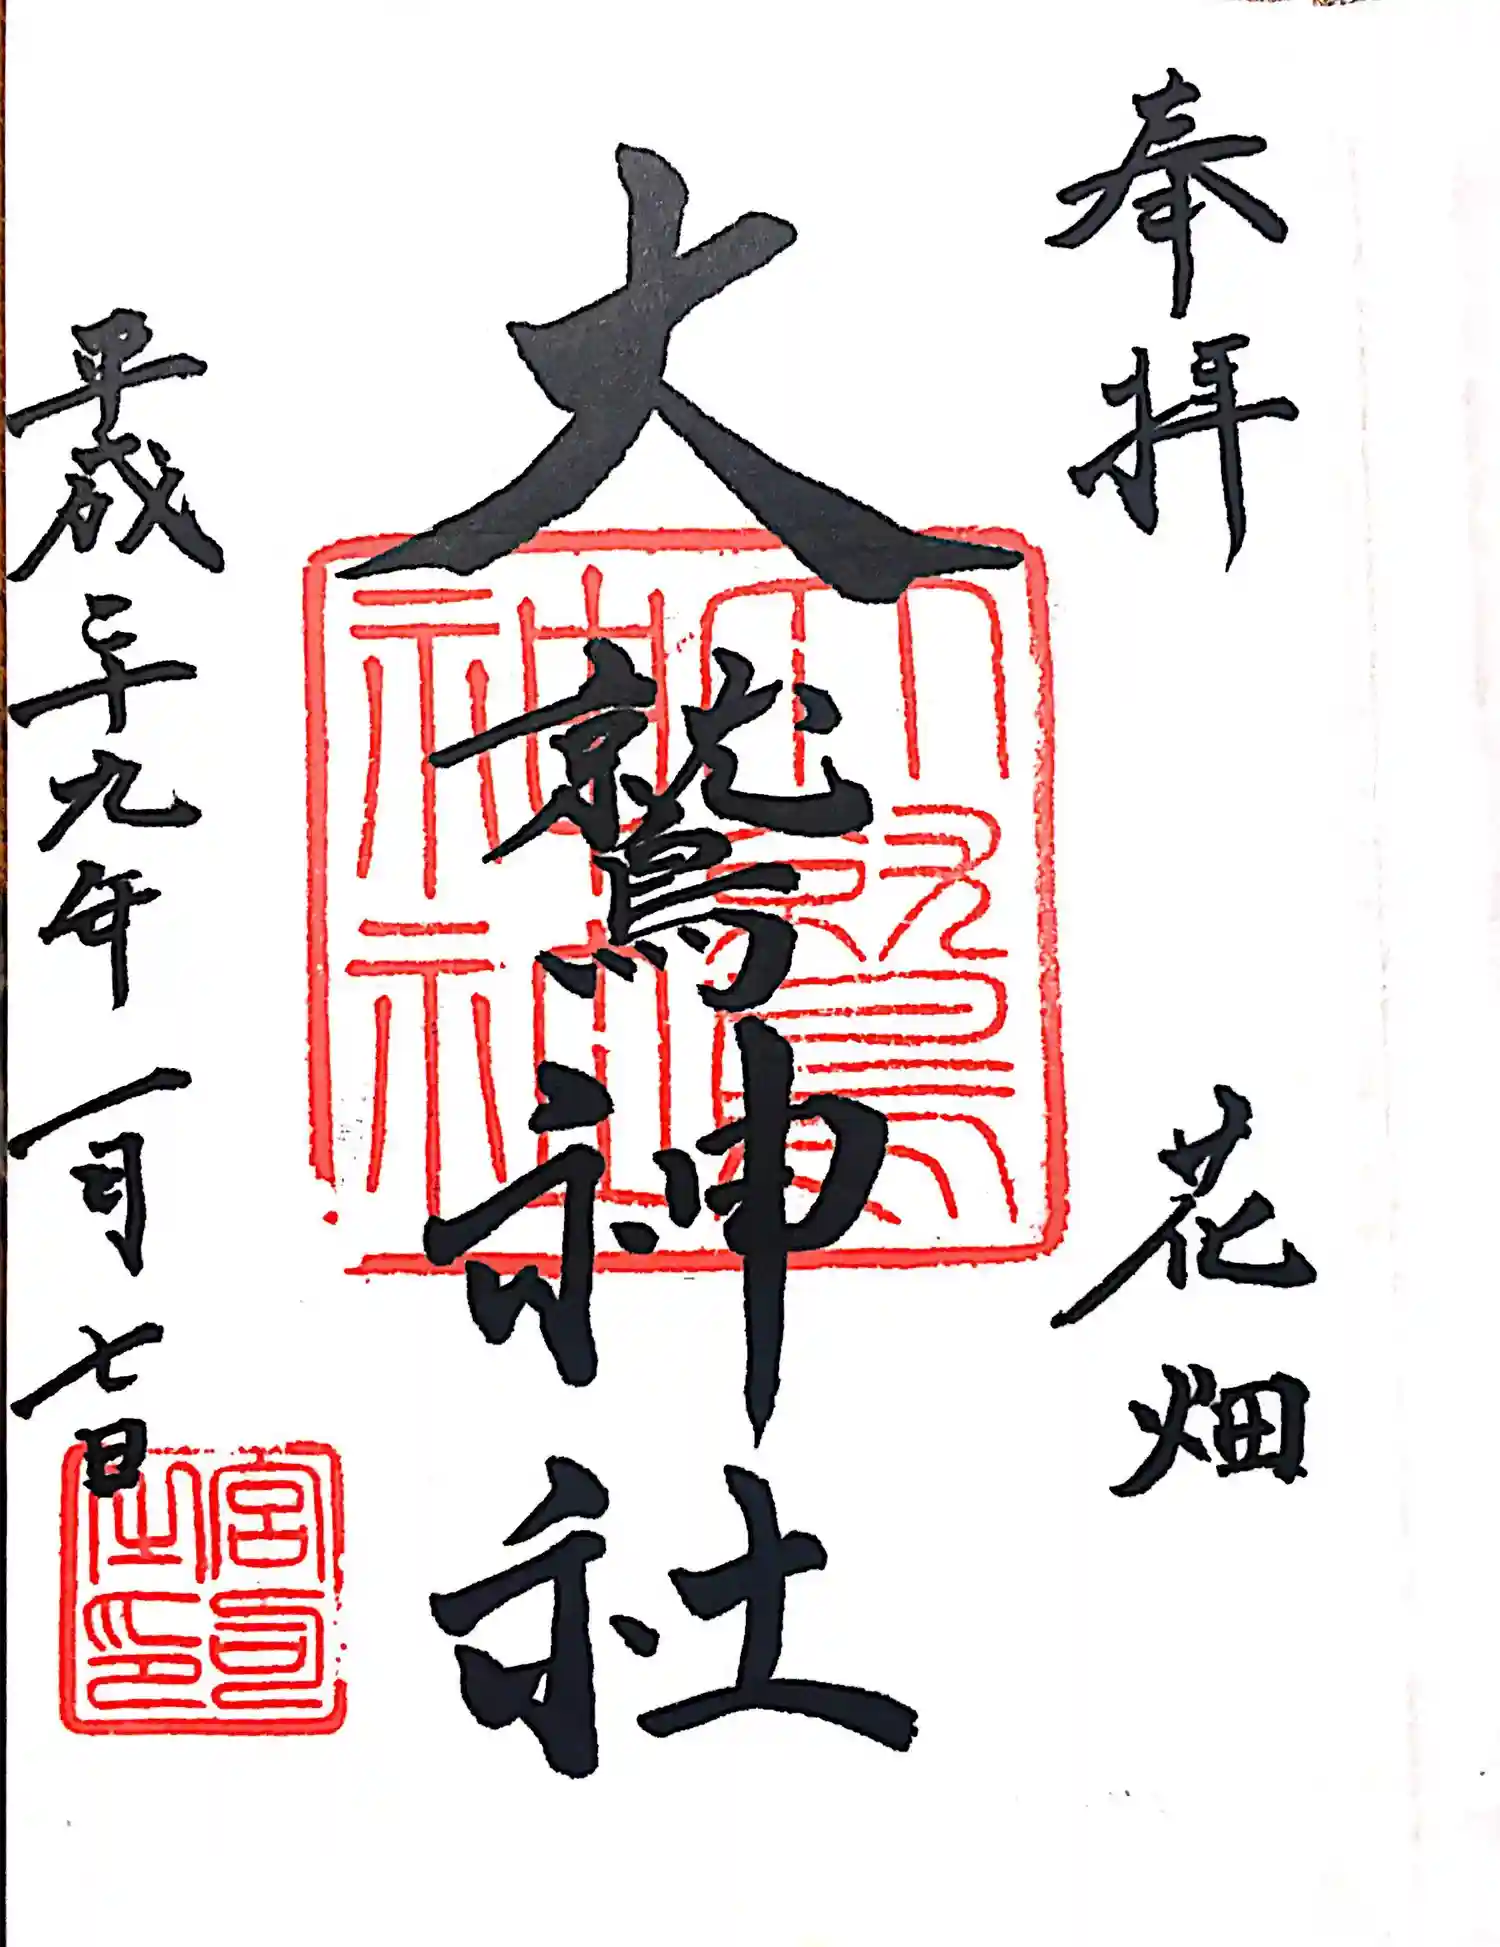 奉拝
花畑
大鷲神社
平成二十九年一月七日
宮司之印